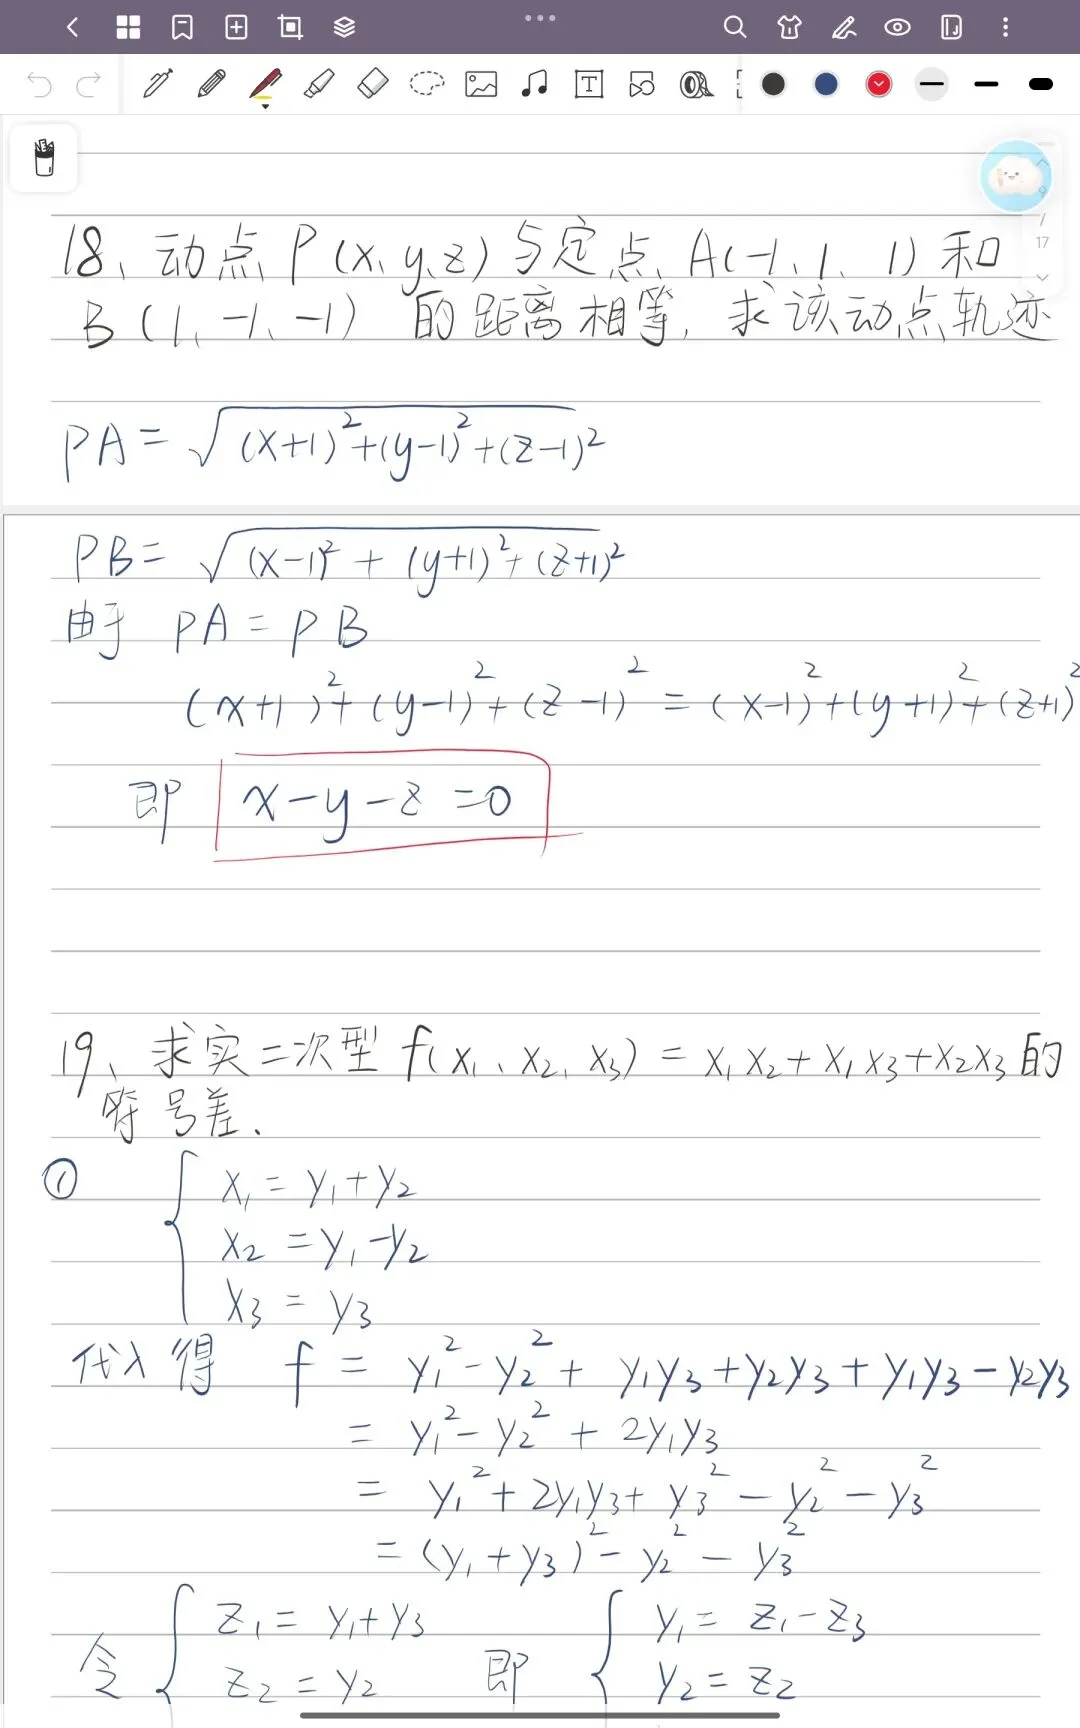 18、动点 P(x、y、z) 与定点 A(-1、1、1) 和
B(1、-1、-1) 的距离相等,求该动点轨迹
PA = √(x+1)²+(y-1)²+(z-1)²
PB = √(x-1)²+(y+1)²+(z+1)²
由于 PA = PB
(x+1)²+(y-1)²+(z-1)² = (x-1)²+(y+1)²+(z+1)²
即 x-y-z=0
19、求实二次型 f(x₁、x₂、x₃) = x₁x₂+x₁x₃+x₂x₃ 的
符号差.
① x₁ = y₁+y₂
x₂ = y₁-y₂
x₃ = y₃
代入得 f = y₁²-y₂²+y₁y₃+y₂y₃+y₁y₃-y₂y₃
= y₁²-y₂²+2y₁y₃
= y₁²+2y₁y₃+y₃²-y₂²-y₃²
= (y₁+y₃)²-y₂²-y₃²
令 { z₁ = y₁+y₃ 即 { y₁ = z₁-z₃
z₂ = y₂ y₂ = z₂
17